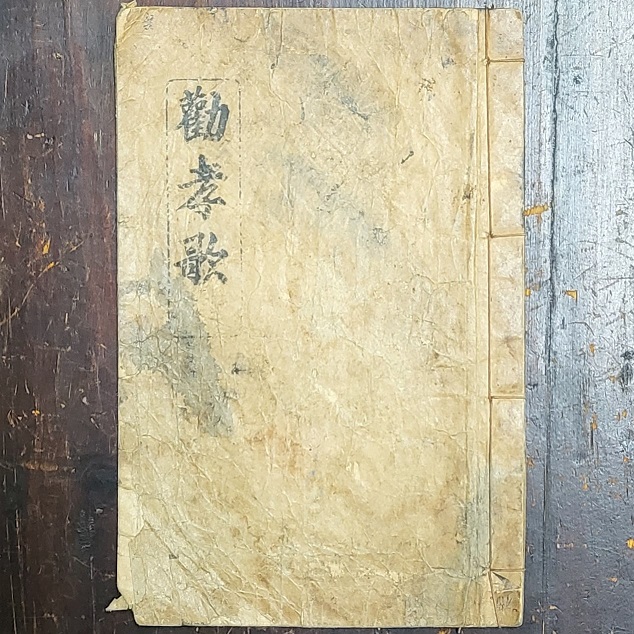 勸孝歌